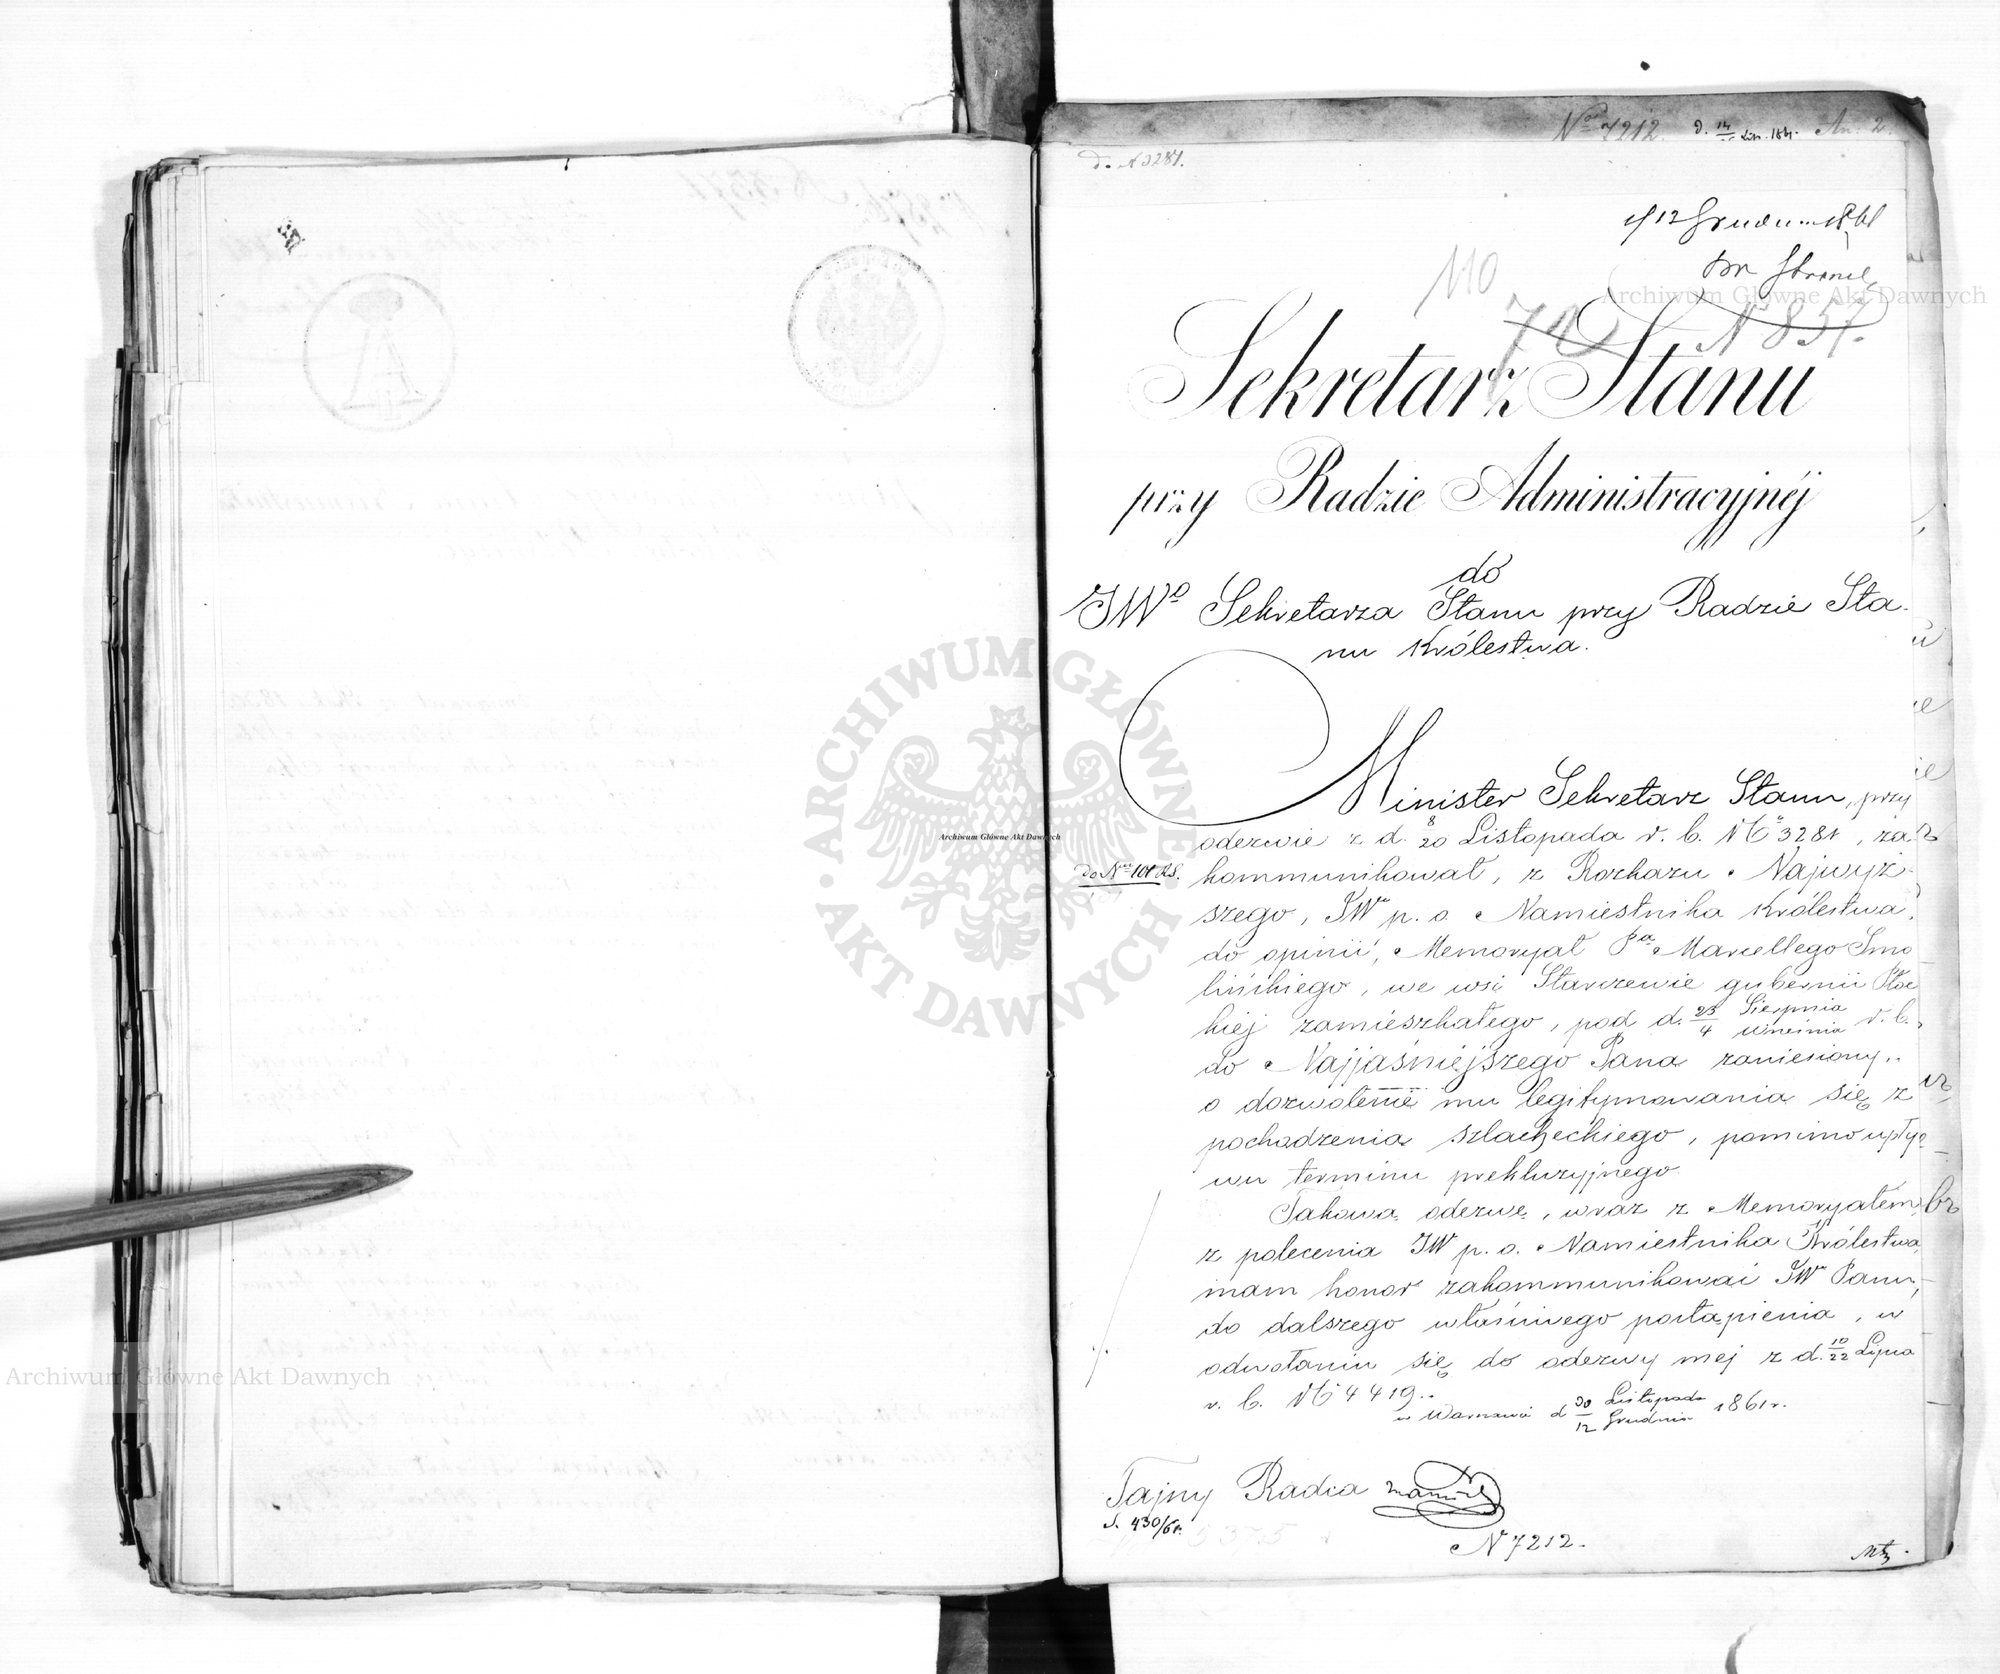 Nro 7212. d. An. 2.
do N 3281.
d/12 Grudn. 1861
110
72
N 857.
Sekretarz Stanu
przy Radzie Administracyjnéj
do
JWo Sekretarza Stanu przy Radzie Sta-
nu Królestwa.
Minister Sekretarz Stanu, przy
odezwie z d. 8/20 Listopada r. b. No 3281, za-
do Nru 101 kommunikował, z Rozkazu Najwyż-
szego, JWu p. o. Namiestnika Królestwa,
do opinii, Memoryał Pa Marcellego Smo-
lińskiego, we wsi Starczewie gubernii Płoc-
kiej zamieszkałego, pod d. 23 Sierpnia/4 Września r. b.
do Najjaśniejszego Pana zaniesiony,
o dozwolenie mu legitymowania się z
pochodzenia szlacheckiego, pomimo upły-
wu terminu prekluzyjnego.
Takową odezwę, wraz z Memoryałem,
z polecenia JW p. o. Namiestnika Królestwa,
mam honor zakommunikować JWu Panu,
do dalszego właściwego postąpienia, w
odwołaniu się do odezwy mej z d. 10/22 Lipca
r. b. No 4419.
w Warszawie d 30 Listopada/12 Grudnia 1861 r.
Tajny Radca
S. 430/61.
N 7212.
Archiwum Główne Akt Dawnych
Archiwum Główne Akt Dawnych
Archiwum Główne Akt Dawnych
ARCHIWUM GŁÓWNE AKT DAWNYCH